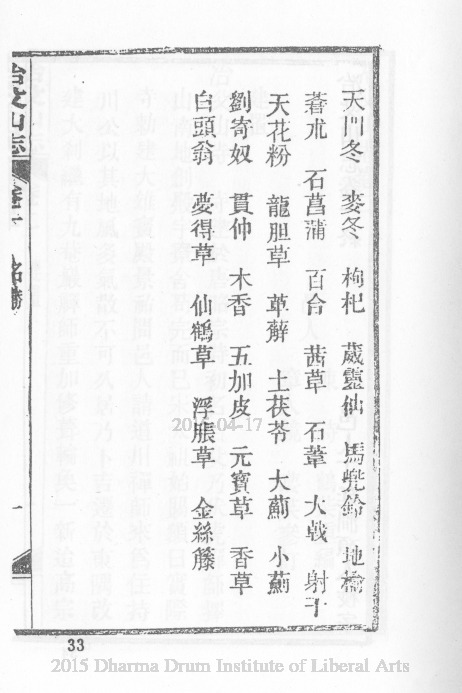 天門冬 麥冬 枸杞 葳靈仙 馬兜鈴 地榆
蒼朮 石菖蒲 百合 茜草 石葦 大戟 射干
天花粉 龍胆草 萆薢 土茯苓 大薊 小薊
劉寄奴 貫仲 木香 五加皮 元寶草 香草
白頭翁 蔓得草 仙鶴草 浮脹草 金絲藤
卷十
2015-04-17
33
2015 Dharma Drum Institute of Liberal Arts